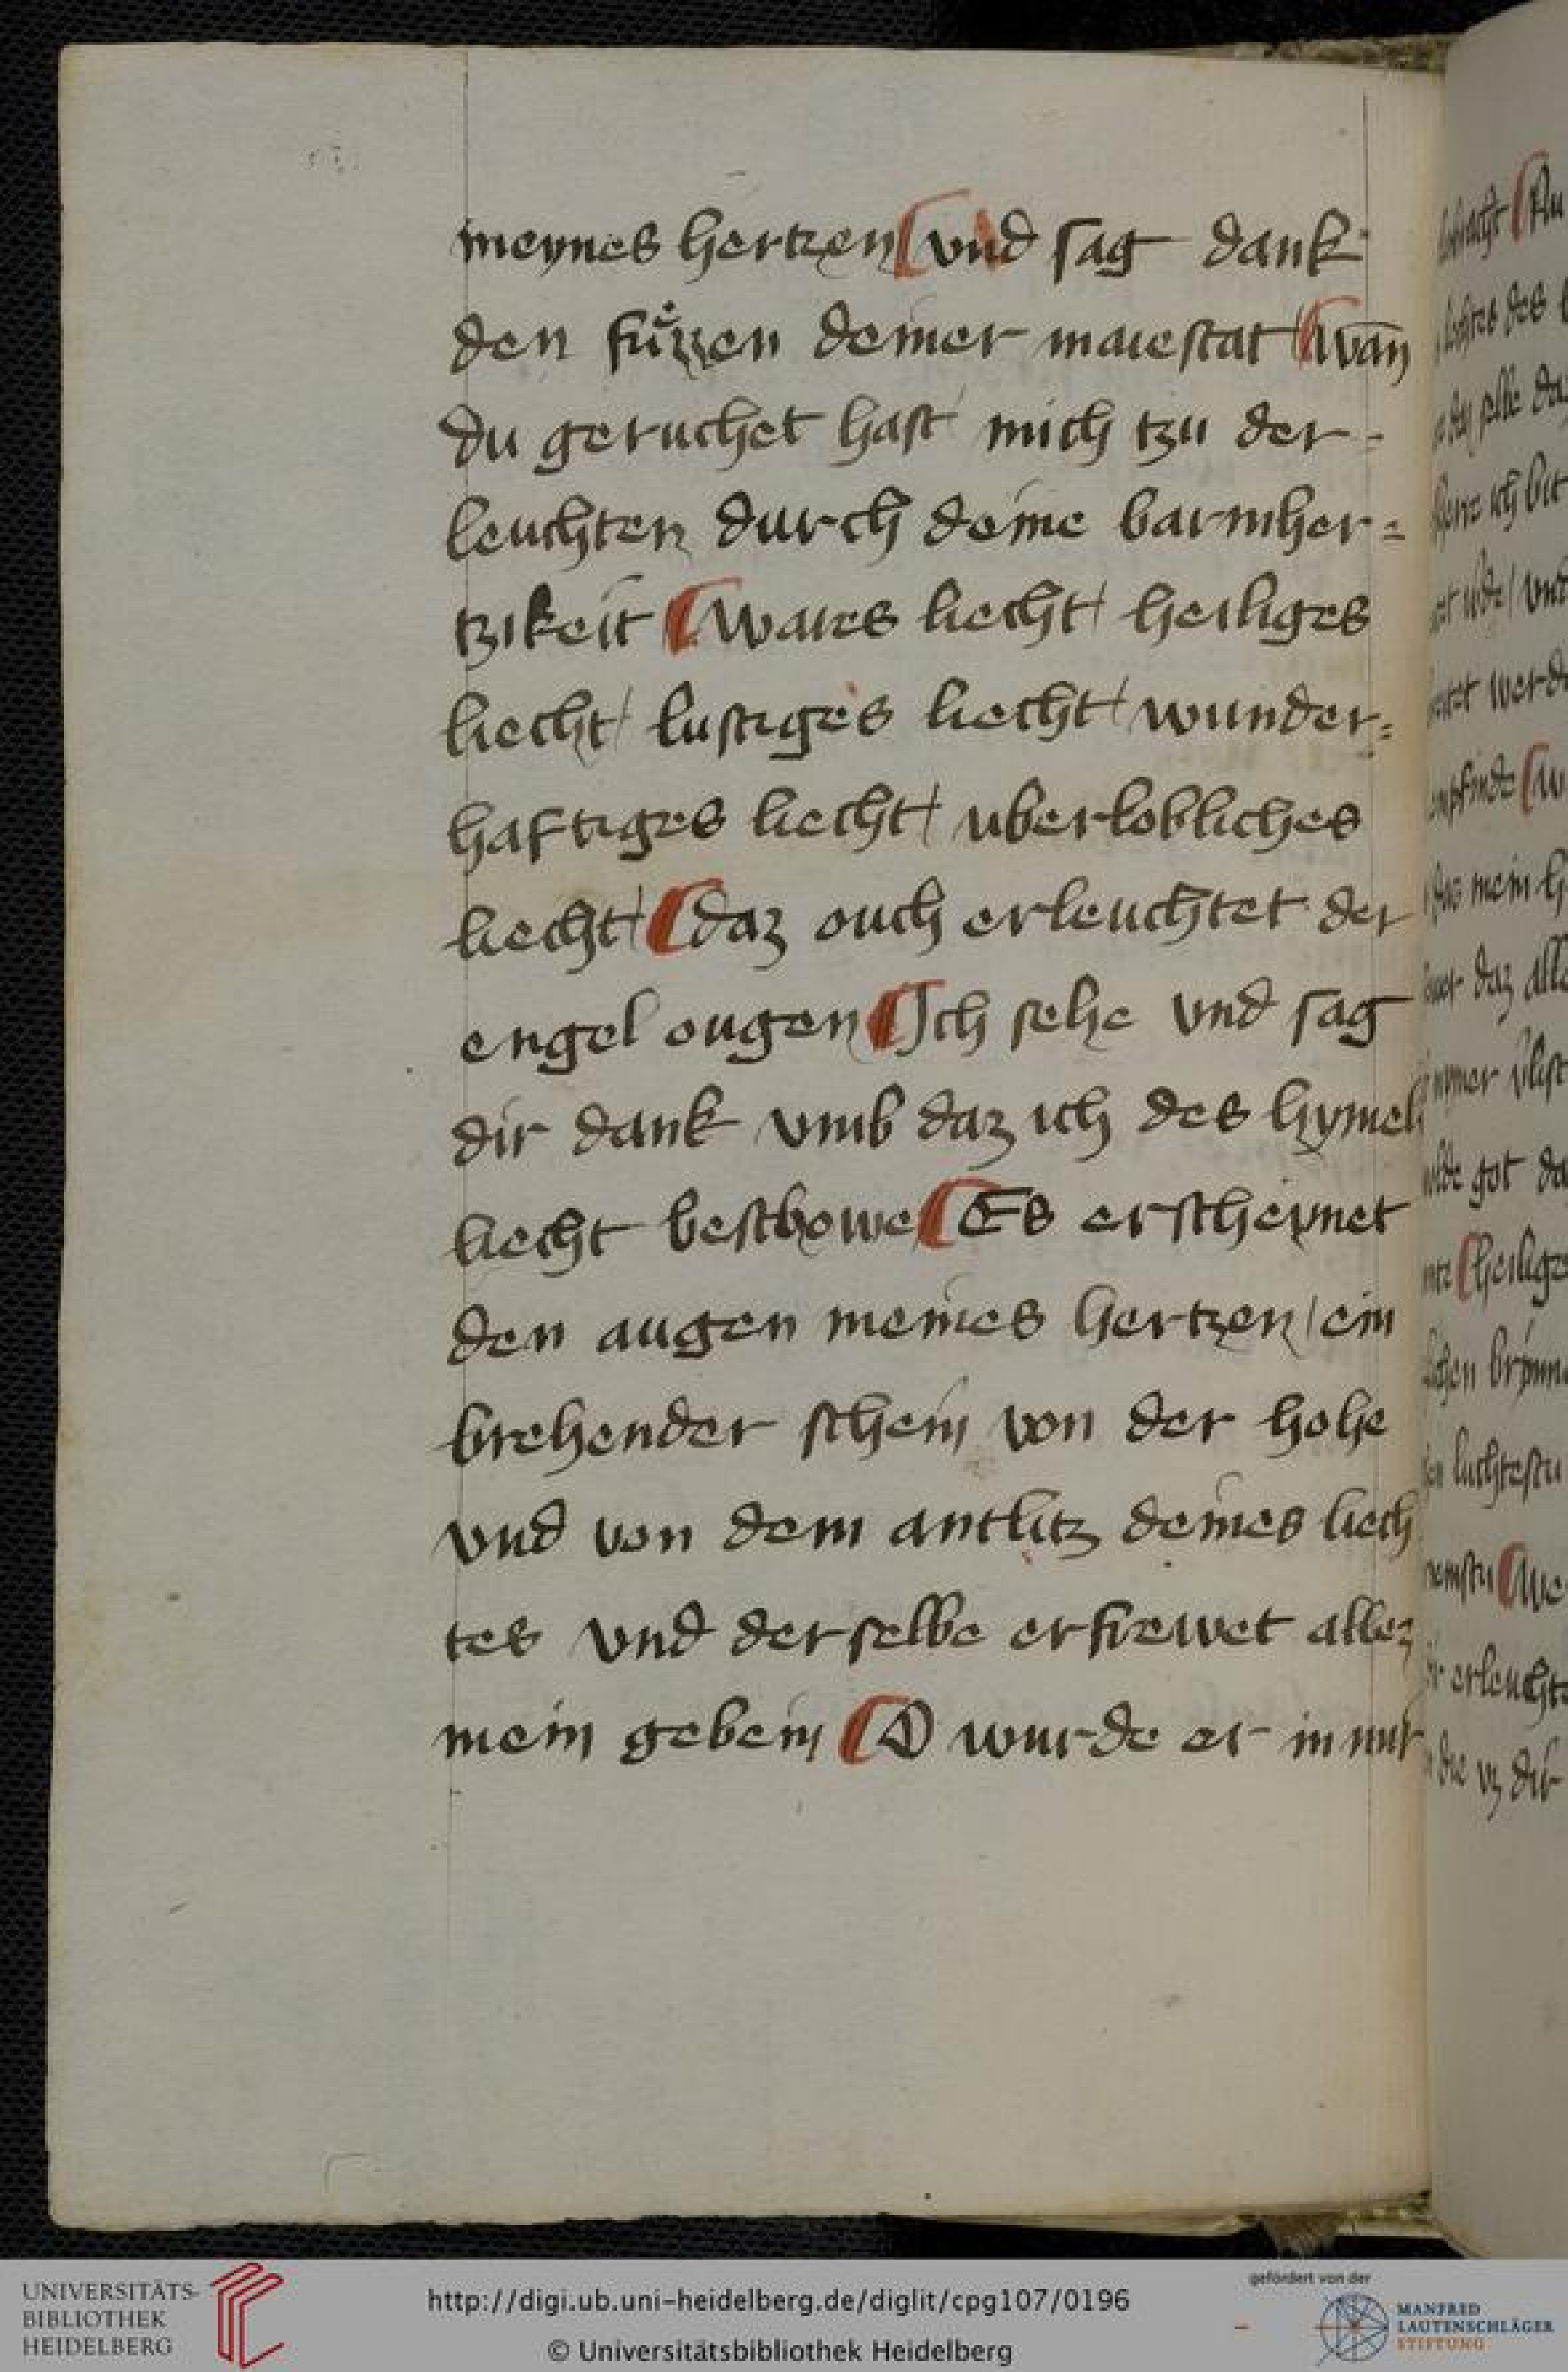 meynes hertzen vnd sag dank
den fuͤzzen deiner maiestat wan̄
du geruchet hast mich tzu der=
leuchten durch deine barmher=
tzikeit Wares liecht / heiliges
liecht / lustiges liecht / wunder=
haftiges liecht / uberlobliches
liecht / daz ouch erleuchtet der
engel ougen Ich sehe vnd sag
dir dank vmb daz ich des hymels
liecht beschowe Es erscheynet
den augen meines hertzen / ein
brehender schein von der hohe
vnd von dem antlitz deines liech
tes vnd derselbe erfrewet allez
mein gebein O wurde er in mir
UNIVERSITÄTS-
BIBLIOTHEK
HEIDELBERG
http://digi.ub.uni-heidelberg.de/diglit/cpg107/0196
© Universitätsbibliothek Heidelberg
gefördert von der
MANFRED
LAUTENSCHLÄGER
STIFTUNG